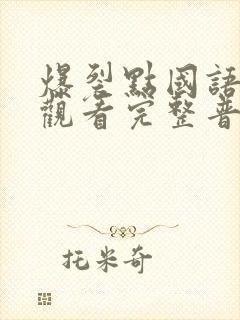 爆裂點國語
觀看完整普
托米奇